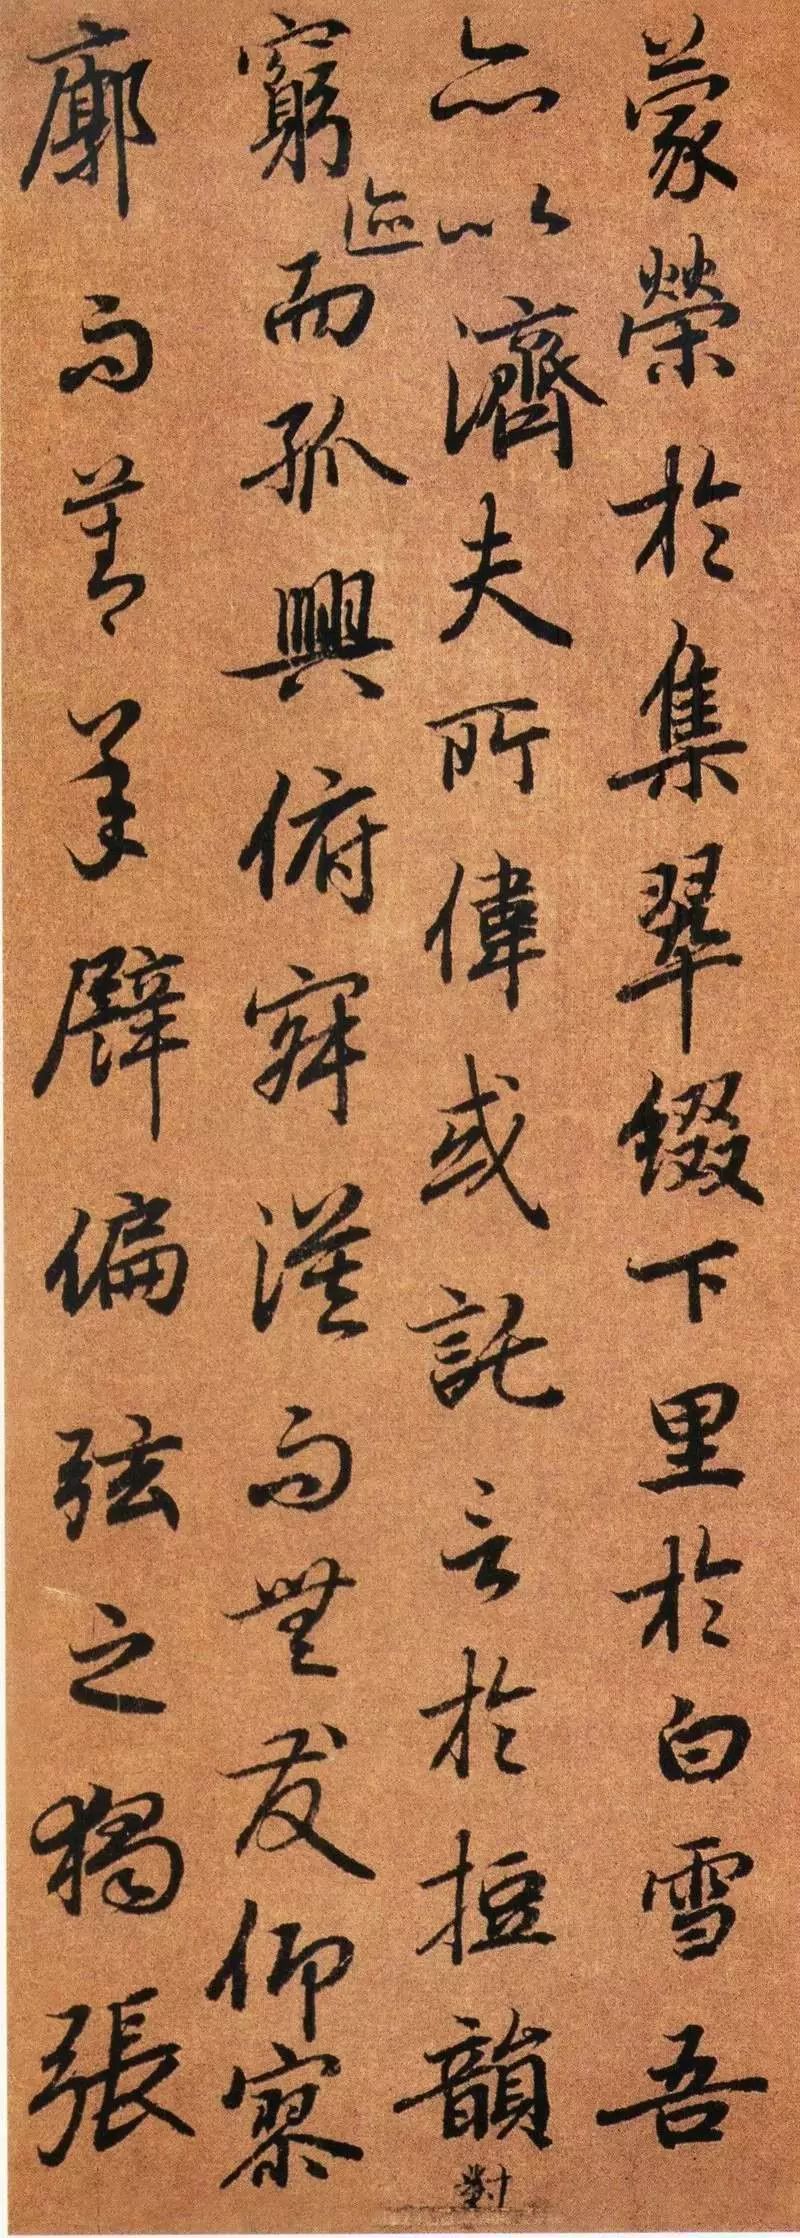 蒙榮於集翠綴下里於白雪吾
亦以濟夫所偉或託言於短韻對
窮迹而孤興俯寂漠而無友仰寥
廓而莫承譬偏弦之獨張